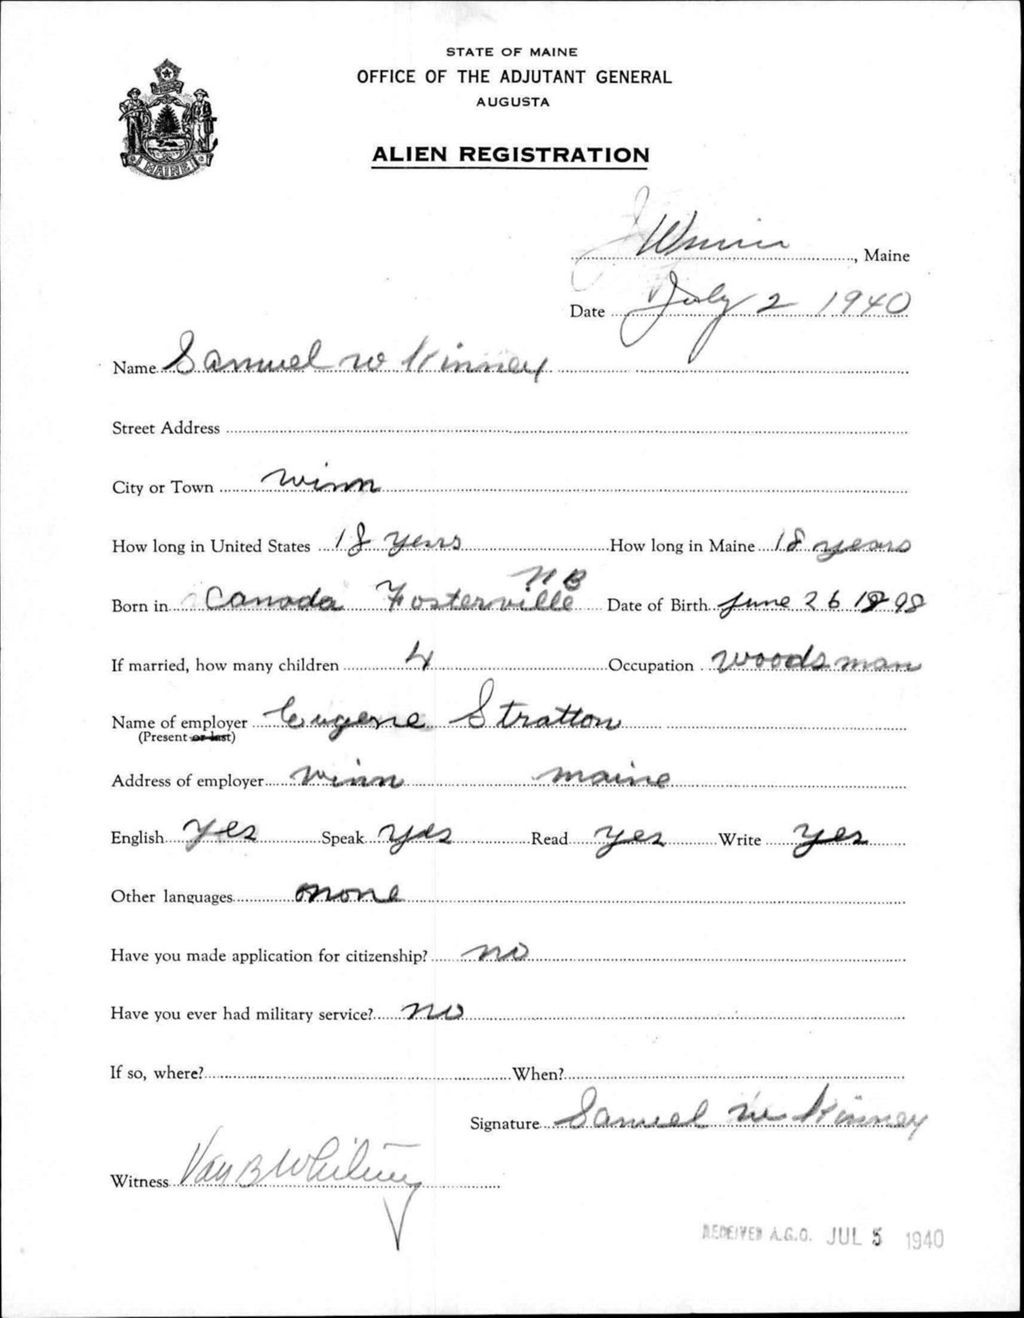 STATE OF MAINE
OFFICE OF THE ADJUTANT GENERAL
AUGUSTA
MAINE
ALIEN REGISTRATION
Winn, Maine
Date July 2 1940
Name Samuel W Kinney
Street Address
City or Town Winn
How long in United States 18 years How long in Maine 18 years
NB
Born in Canada Fosterville Date of Birth June 26 1898
If married, how many children 4 Occupation woodsman
Name of employer Eugene Stratton
(Present or last)
Address of employer winn maine
English yes Speak yes Read yes Write yes
Other languages none
Have you made application for citizenship? no
Have you ever had military service? no
If so, where? When?
Signature Samuel W Kinney
Witness B Whiting
RECEIVED A.G.O. JUL 5 1940